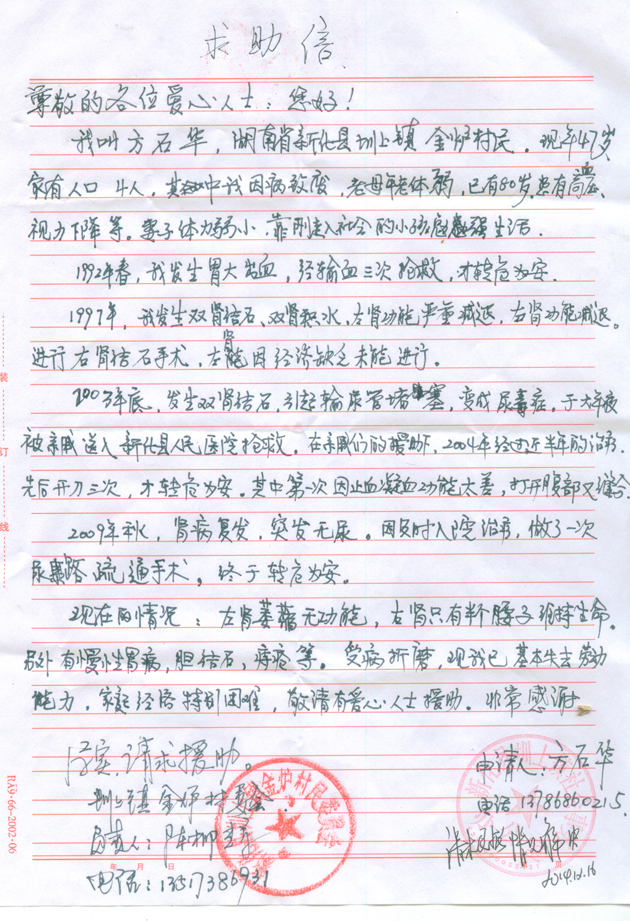 求助信
尊敬的各位爱心人士：您好！
我叫方石华，湖南省新化县圳上镇金炉村民。现年47岁
家有人口4人，其中我因病致废，老母年老体弱，已有80岁，患有高血压、
视力下降等。妻子体力弱小，靠刚走入社会的小孩勉强生活．
1992年春，我发生胃大出血，经输血三次抢救，才转危为安．
1997年，我发生双肾结石、双肾积水，左肾功能严重减退，右肾功能减退。
进行右肾结石手术，左肾因经济缺乏未能进行。
2003年底，发生双肾结石，引起输尿管堵塞，变成尿毒症，于大年夜
被亲戚送入新化县人民医院抢救。在亲戚们的援助下，2004年经过近半年的治疗．
先后开刀三次，才转危为安。其中第一次因止血凝血功能太差，打开腹部又缝合．
2009年秋，肾病复发，突发无尿。因及时入院治疗，做了一次
尿路疏通手术，终于转危为安。
现在的情况：左肾萎缩无功能，右肾只有半个腰子维持生命。
另外有慢性胃病，胆结石，痔疮等。受病折磨，现我已基本失去劳动
能力，家庭经济特别困难，敬请有爱心人士援助。非常感谢
属实，请求援助。
圳上镇金炉村委会
负责人：陈柳
电话：13517386931
申请人：方石华
电话13786800215．
2014.12.16
金炉村民委员会
圳上镇
装
订
线
年 月 日
RA9·66-2002-06